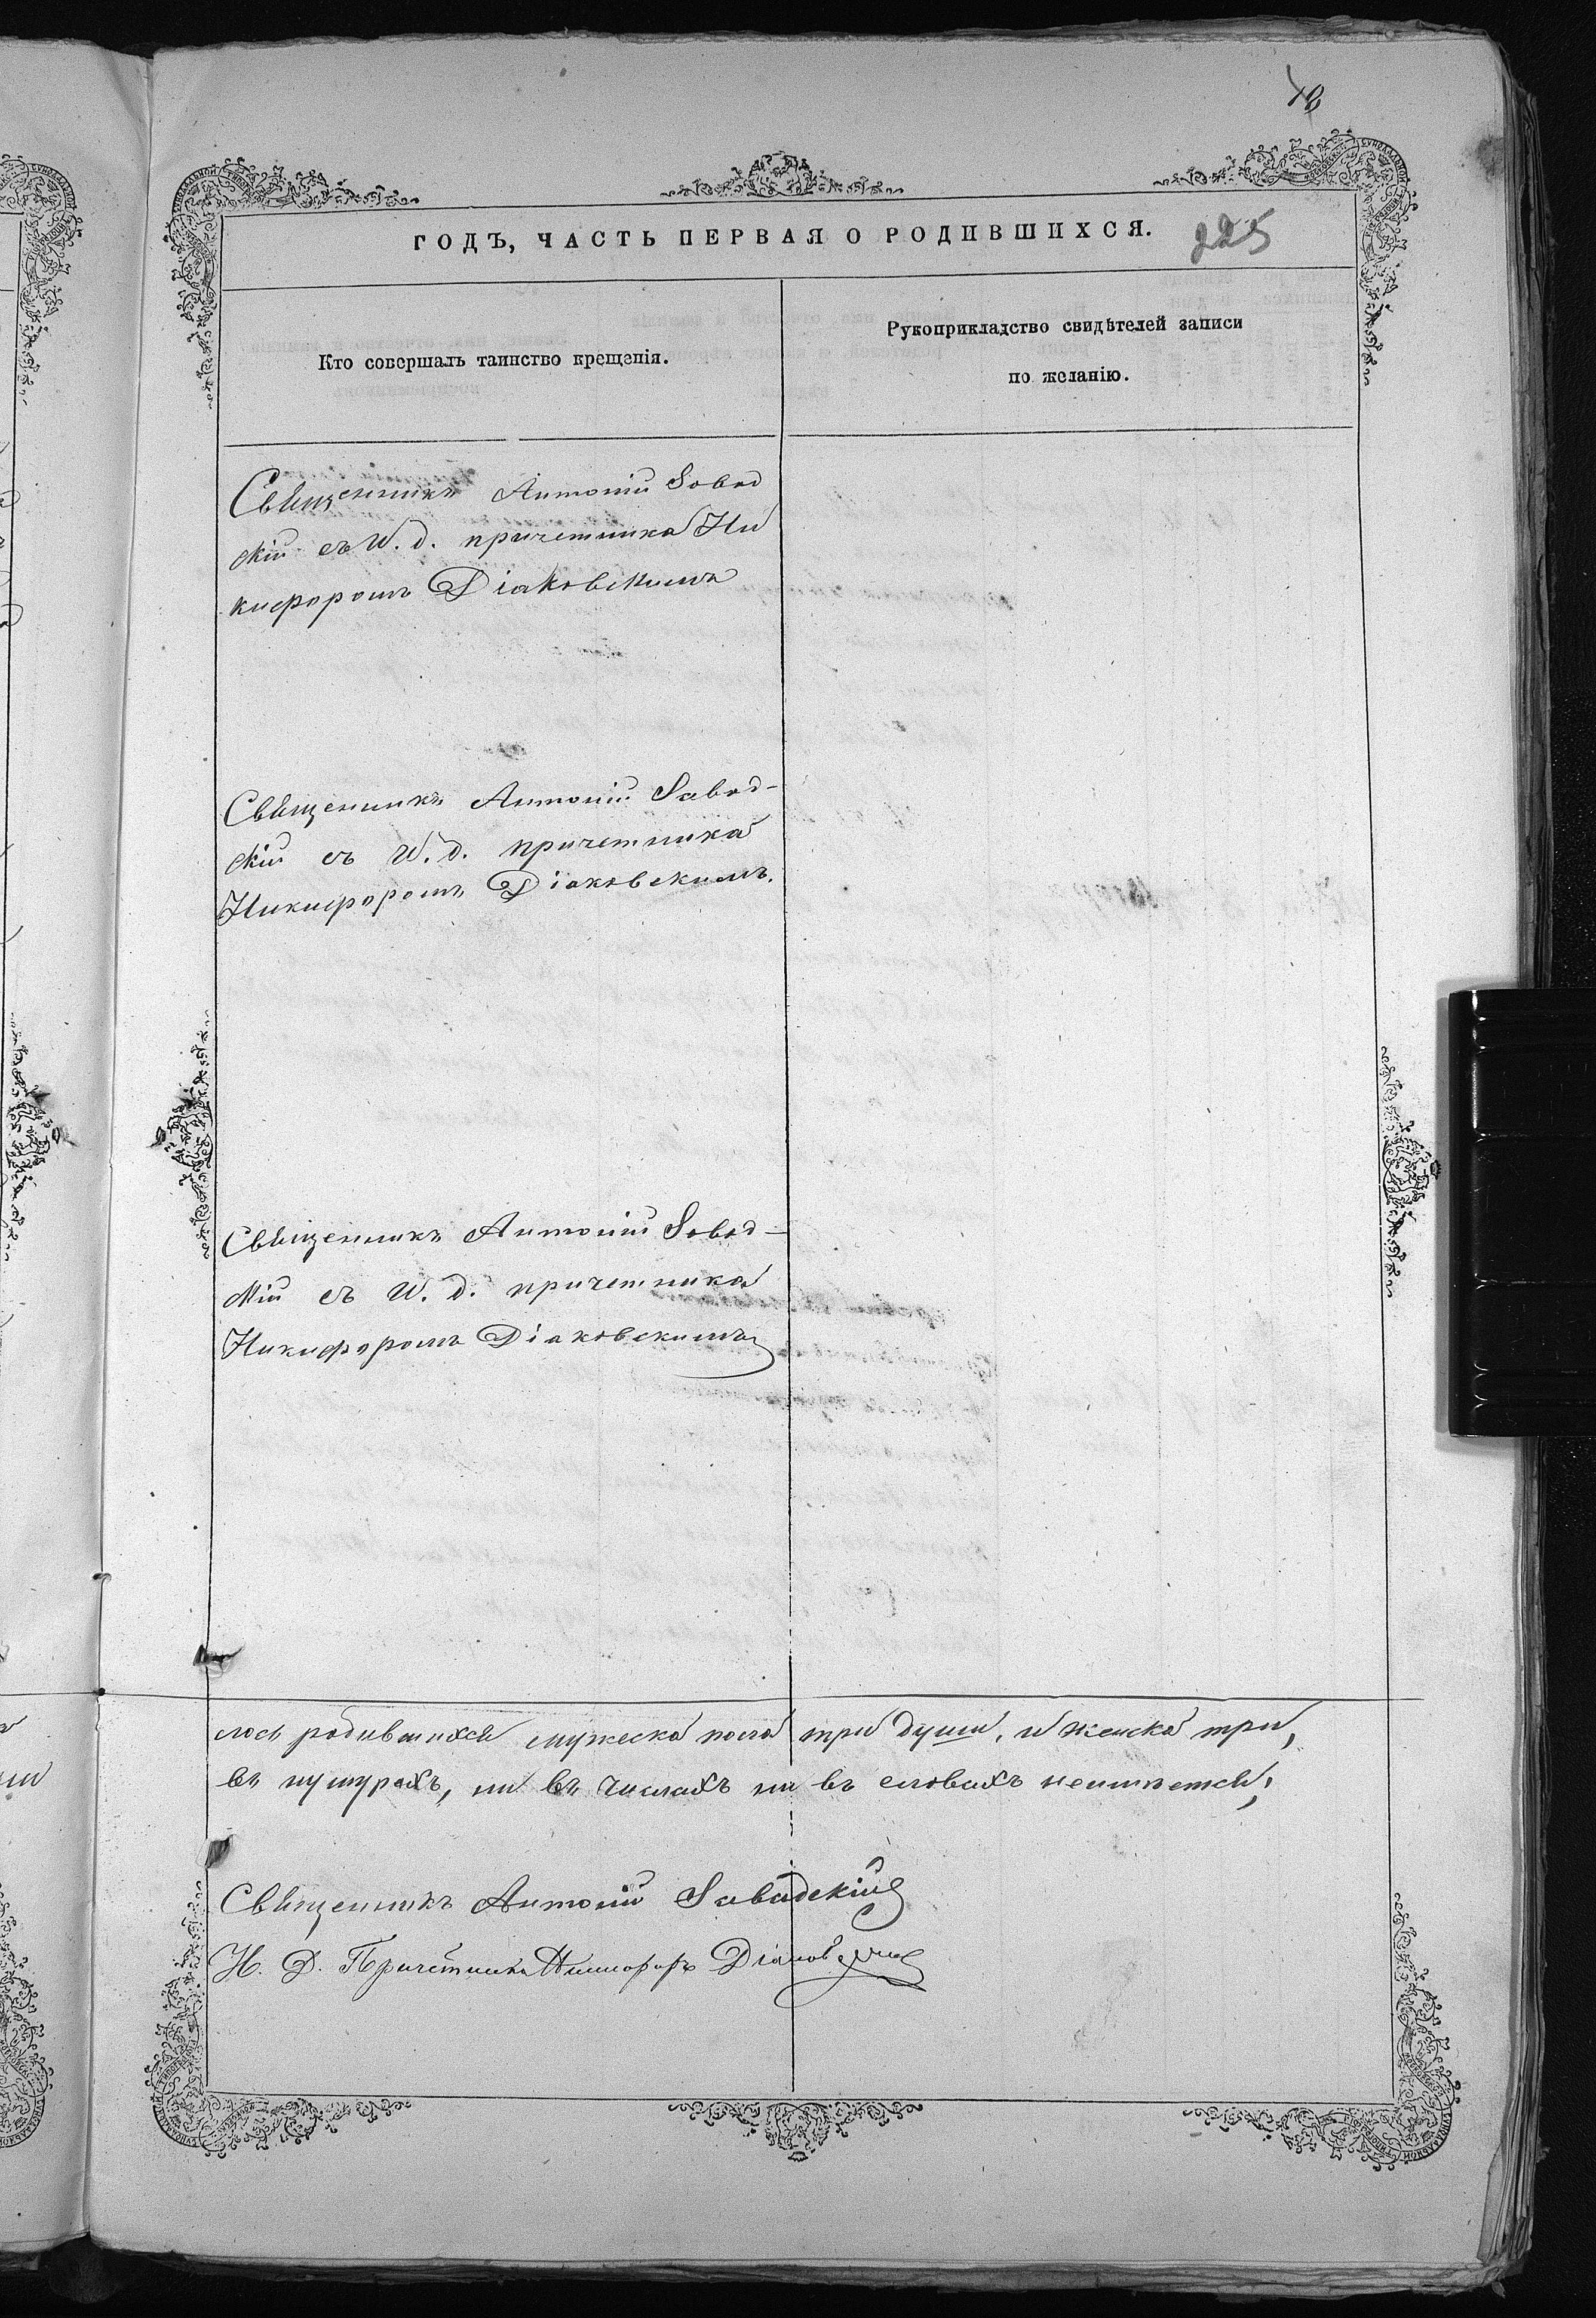 ГОДЪ, ЧАСТЬ ПЕРВАЯ О РОДИВШИХСЯ. 225
Кто совершалъ таинство крещенія.
Рукоприкладство свидѣтелей записи
по желанію.
Священникъ Антоній Завод
скій съ И. д. причетника Ни
кифоромъ Діаковскимъ
Священникъ Антоній Завод-
скій съ И. д. причетника
Никифоромъ Діаковскимъ.
Священникъ Антоній Завод-
скій съ И. д. причетника
Никифоромъ Діаковскимъ
лось родившихся мужеска пола три души, и женска три,
ни въ числахъ ни въ словахъ
Священникъ Антоній Завадскій
И. Д. Причетника Никифоръ Діаковскій